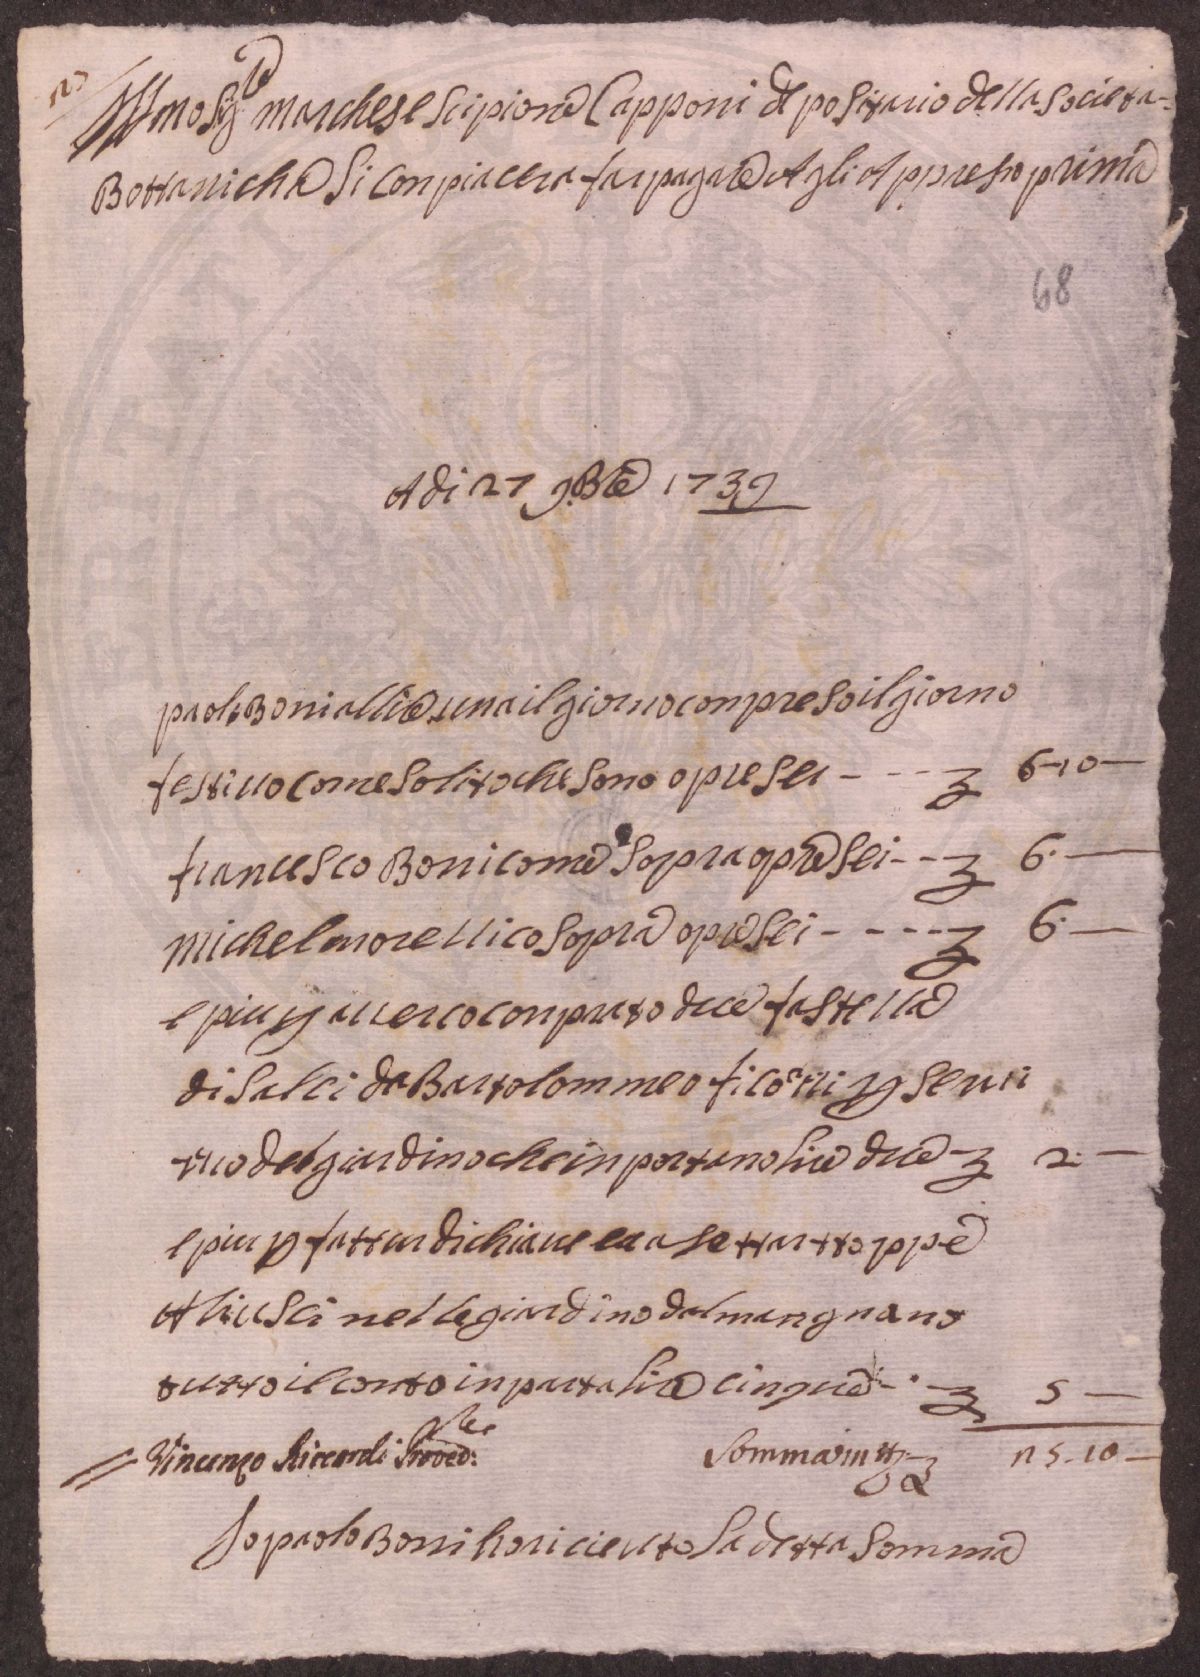 Illmo Sig.re marchese Scipione Capponi depositario della Societa
Bottanicha Si Conpiacera far pagare Agli Appresso prima
68
A di 27 9.Bre 1739
paolo Boni a lire una il giorno conpreso il giorno
festivo come Solito che Sono opre Sei - - - - 6-10-
francesco Boni come Sopra opre Sei - - - 6.-
Michel morelli co Sopra opre Sei - - - - 6.-
e piu p auer conprato dua fastella
di Salci da Bartolommeo p Serui
tio del giardino che inportano lire due 2.-
e piu p fattur di chiaue e a
Usci nelle giardino dal mangnano
tutto il conto inporta lire cinque - 5-
Vincenzo Riccardi Proved:
Somma in tt 25.10-
Io paolo Boni ho riceuto la detta Somma